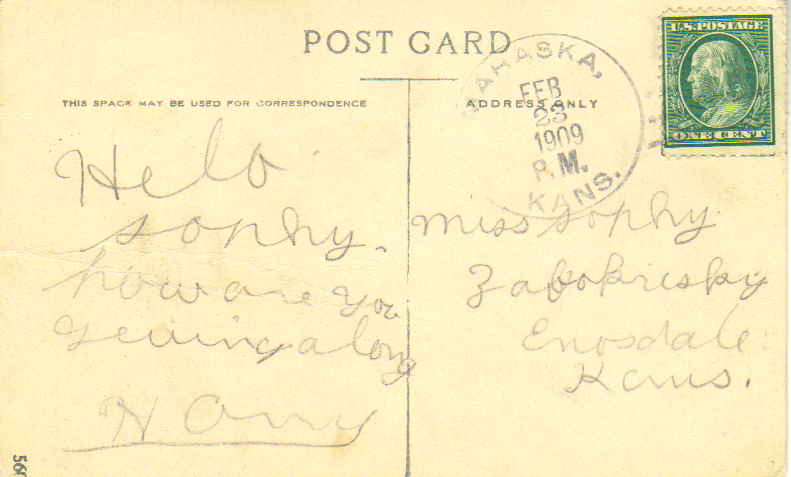 POST CARD
THIS SPACE MAY BE USED FOR CORRESPONDENCE
ADDRESS ONLY
MAHASKA,
FEB
23
1909
P.M.
KANS.
U.S. POSTAGE
ONE CENT
Helo
Sophy.
how are you
geuing along
Miss Sophy
Enosdale
Kans.
560